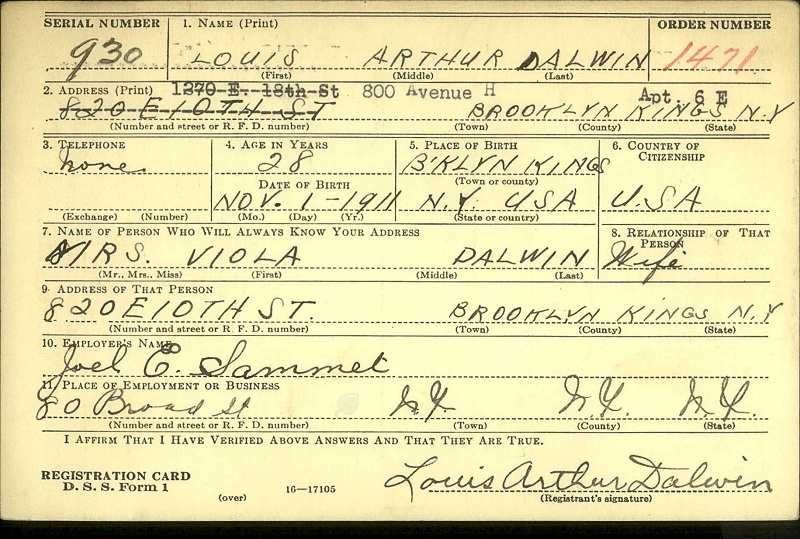 SERIAL NUMBER 1. NAME (Print) ORDER NUMBER
930 LOUIS ARTHUR DALWIN 1471
(First) (Middle) (Last)
2. ADDRESS (Print) 1270 E. 18th St 800 Avenue H Apt. 6 E
820 E 10TH ST BROOKLYN KINGS N.Y
(Number and street or R. F. D. number) (Town) (County) (State)
3. TELEPHONE 4. AGE IN YEARS 5. PLACE OF BIRTH 6. COUNTRY OF CITIZENSHIP
None 28 B'KLYN KINGS
(Town or county)
DATE OF BIRTH
NOV. 1-1911 N.Y. USA U.S.A
(Exchange) (Number) (Mo.) (Day) (Yr.) (State or country)
7. NAME OF PERSON WHO WILL ALWAYS KNOW YOUR ADDRESS 8. RELATIONSHIP OF THAT PERSON
MRS. VIOLA DALWIN Wife
(Mr., Mrs., Miss) (First) (Middle) (Last)
9. ADDRESS OF THAT PERSON
820 E 10TH ST. BROOKLYN KINGS N.Y
(Number and street or R. F. D. number) (Town) (County) (State)
10. EMPLOYER'S NAME
Joel E. Sammet
11. PLACE OF EMPLOYMENT OR BUSINESS
80 Broad St N.Y. N.Y. N.Y.
(Number and street or R. F. D. number) (Town) (County) (State)
I AFFIRM THAT I HAVE VERIFIED ABOVE ANSWERS AND THAT THEY ARE TRUE.
REGISTRATION CARD
D. S. S. Form 1
(over) 16—17105
Louis Arthur Dalwin
(Registrant's signature)